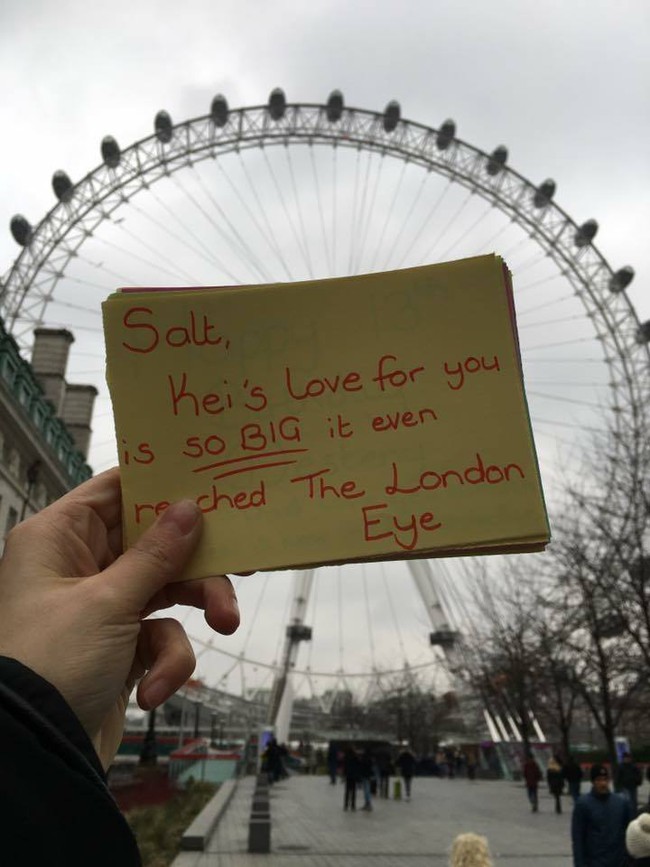 Salt,
Kei's love for you
is SO BIG it even
reached The London
Eye